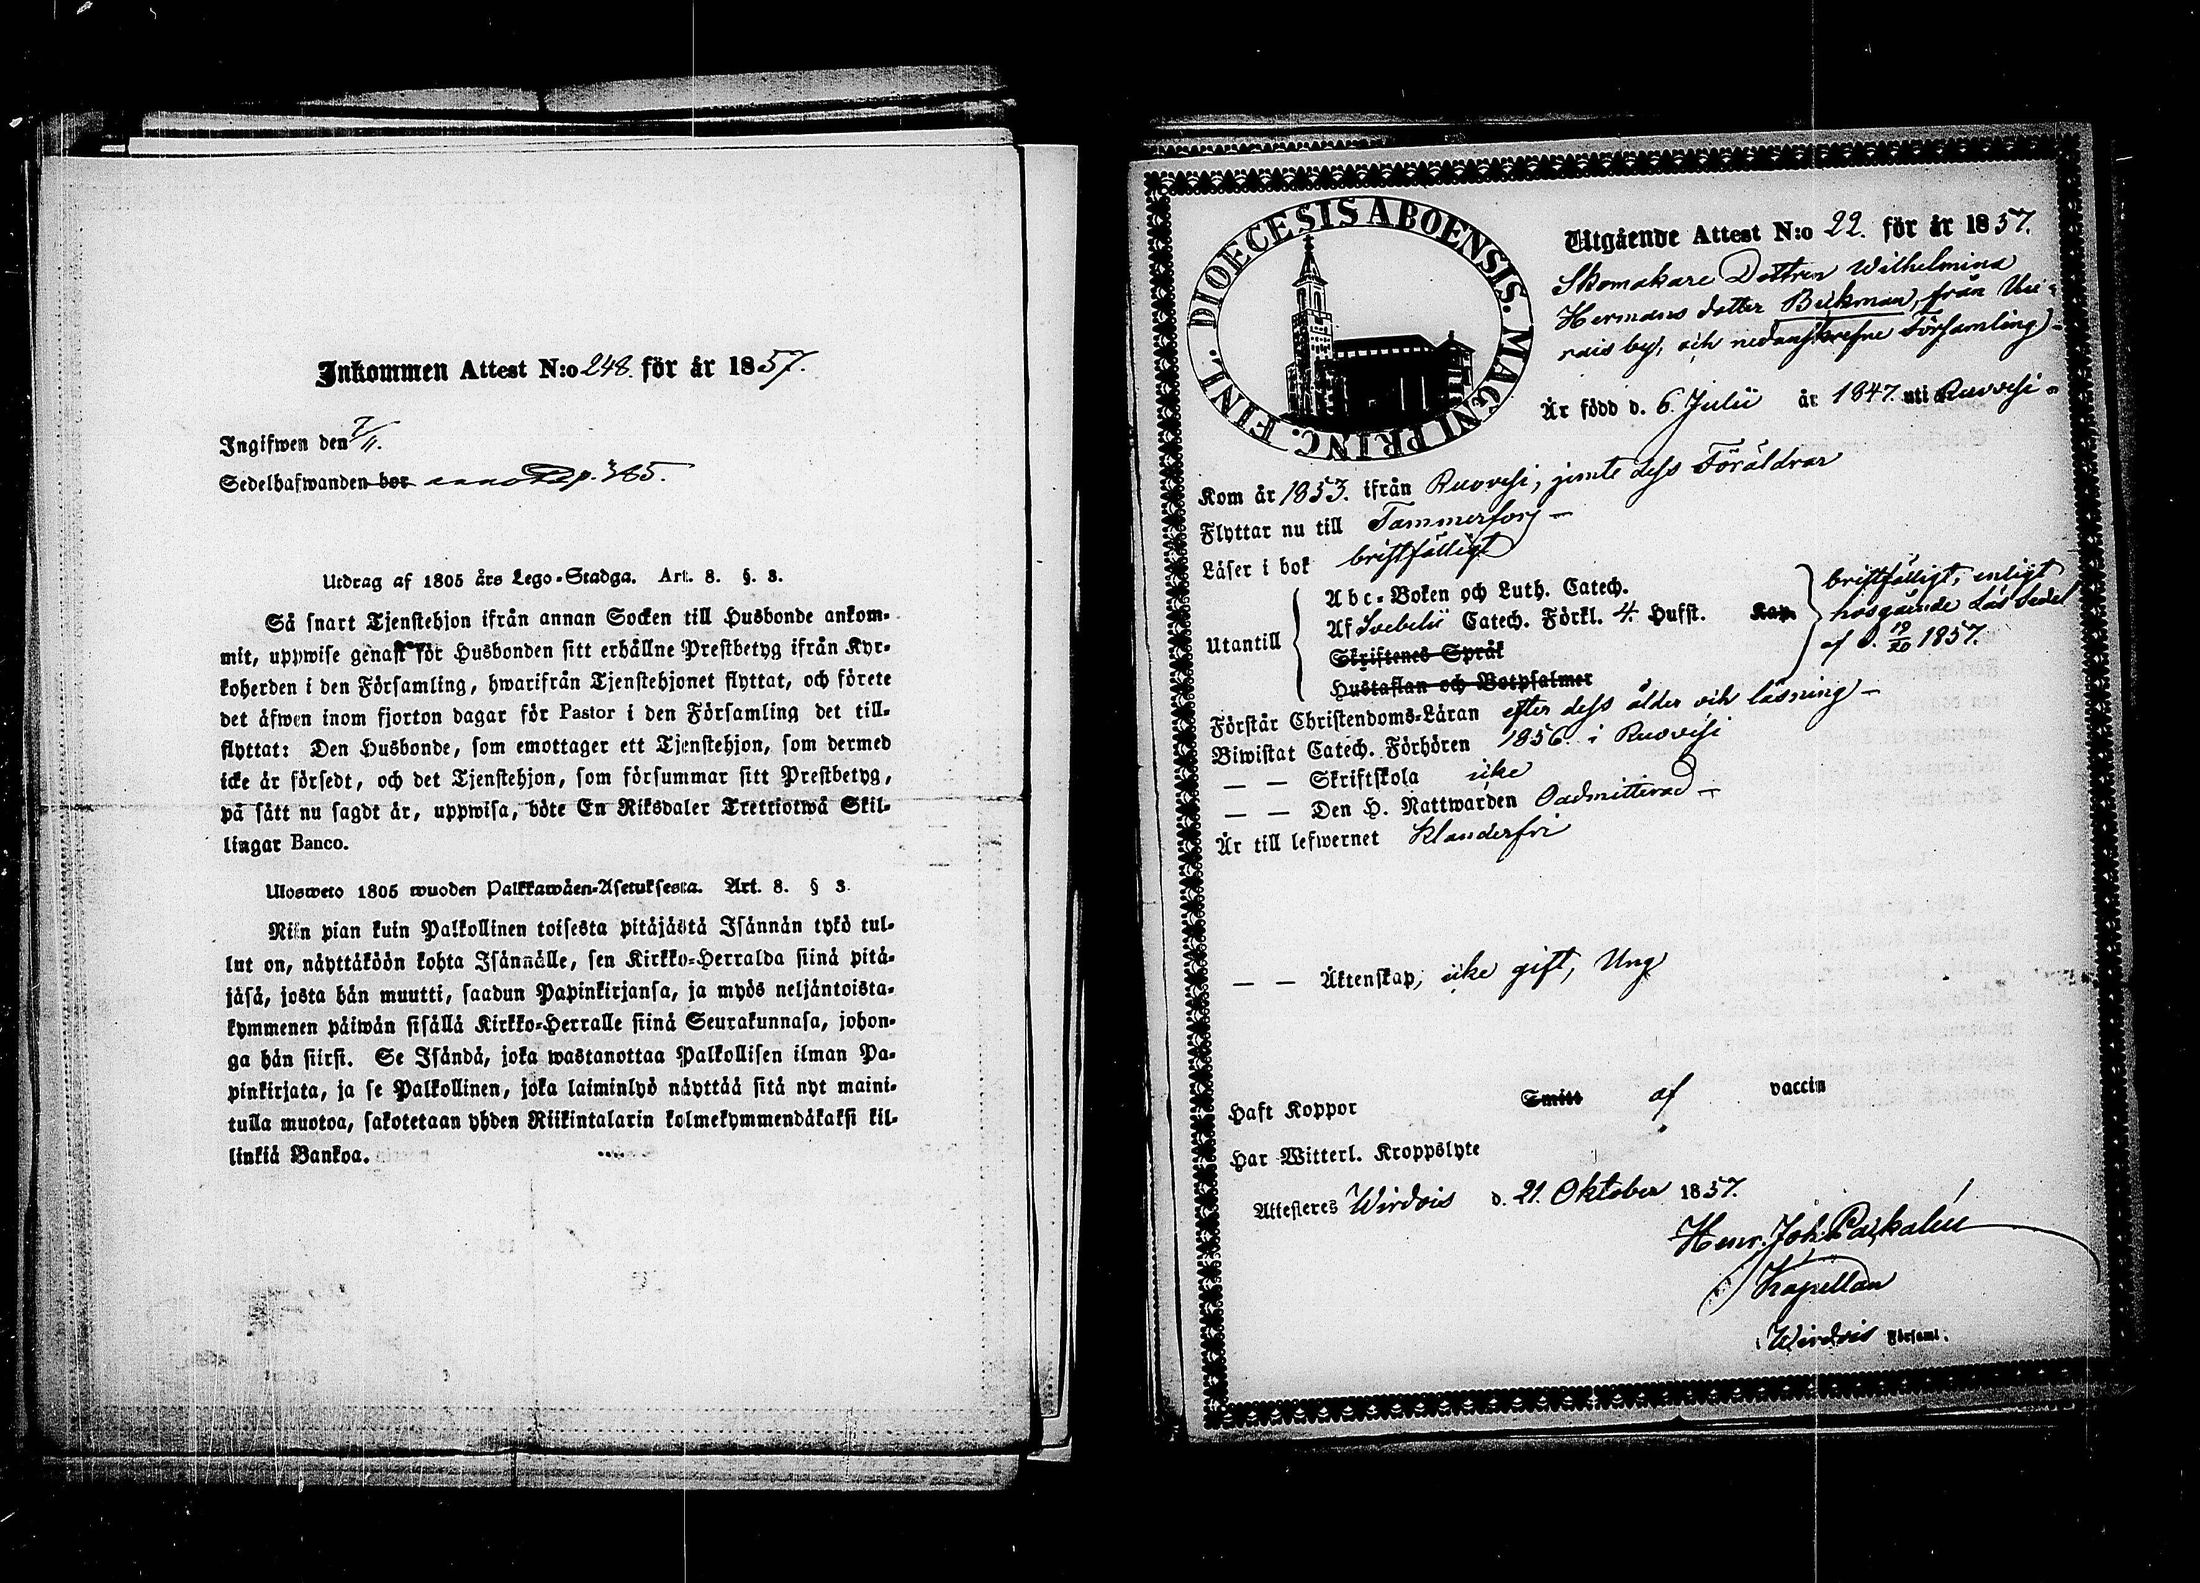 Inkommen Attest N:o 248. för år 1857.
Ingifwen den 7/11.
Sedelhafwanden bor annot. p. 365.
Utdrag af 1805 års Lego-Stadga. Art. 8. §. 3.
Så snart Tjenstehjon ifrån annan Socken till Husbonde ankom-
mit, uppwise genast för Husbonden sitt erhållne Prestbetyg ifrån Kyr-
koherden i den Församling, hwarifrån Tjenstehjonet flyttat, och förete
det äfwen inom fjorton dagar för Pastor i den Församling det till-
flyttat: Den Husbonde, som emottager ett Tjenstehjon, som dermed
icke är försedt, och det Tjenstehjon, som försummar sitt Prestbetyg,
på sätt nu sagdt är, uppwisa, böte En Riksdaler Trettiotwå Skil-
lingar Banco.
Ulosweto 1805 wuoden Palkkawäen-Asetuksesta. Art. 8. § 3.
Niin pian kuin Palkollinen toisesta pitäjästä Isännän tykö tul-
lut on, näyttäköön kohta Isännälle, sen Kirkko-Herralda siinä pitä-
jäsä, josta hän muutti, saadun Papinkirjansa, ja myös neljäntoista-
kymmenen päiwän sisällä Kirkko-Herralle siinä Seurakunnasa, johon-
ga hän siirsi. Se Isändä, joka wastanottaa Palkollisen ilman Pa-
pinkirjata, ja se Palkollinen, joka laiminlyö näyttää sitä nyt maini-
tulla muotoa, sakotetaan yhden Riikintalarin kolmekymmendäkaksi kil-
linkiä Bankoa.
DIOECESIS ABOENSIS. MAGNI PRINC. FINL.
Utgående Attest N:o 22. för år 1857.
Skomakare Dottren Wilhelmina
Hermans dotter Beckman, från
by, och nedanskrefne Församling
Är född d. 6. Julii år 1847. uti Ruovesi
Kom år 1853. ifrån Ruovesi, jemte dess Föräldrar
Flyttar nu till Tammerfors
Läser i bok bristfälligt
Utantill
Abc-Boken och Luth. Catech.
Af Svebelii Catech. Förkl. 4. Hufst. Kap.
Skriftenes Språk
Hustaflan och Botpsalmer
bristfälligt, enligt
hosgående Läs Sedel
af d. 19/20 1857.
Förstår Christendoms-Läran efter dess ålder och läsning
Biwistat Catech. Förhören 1856. i Ruovesi
— — Skriftskola icke
— — Den H. Nattwarden Oadmitterad
Är till lefwernet Klanderfri
— — Äktenskap, icke gift, Ung
Haft Koppor Smitt af vaccin
Har Witterl. Kroppslyte
Attesteres Wirdois d. 21. Oktober 1857.
Henr. Joh.
Kapellan
Wirdois Församl.